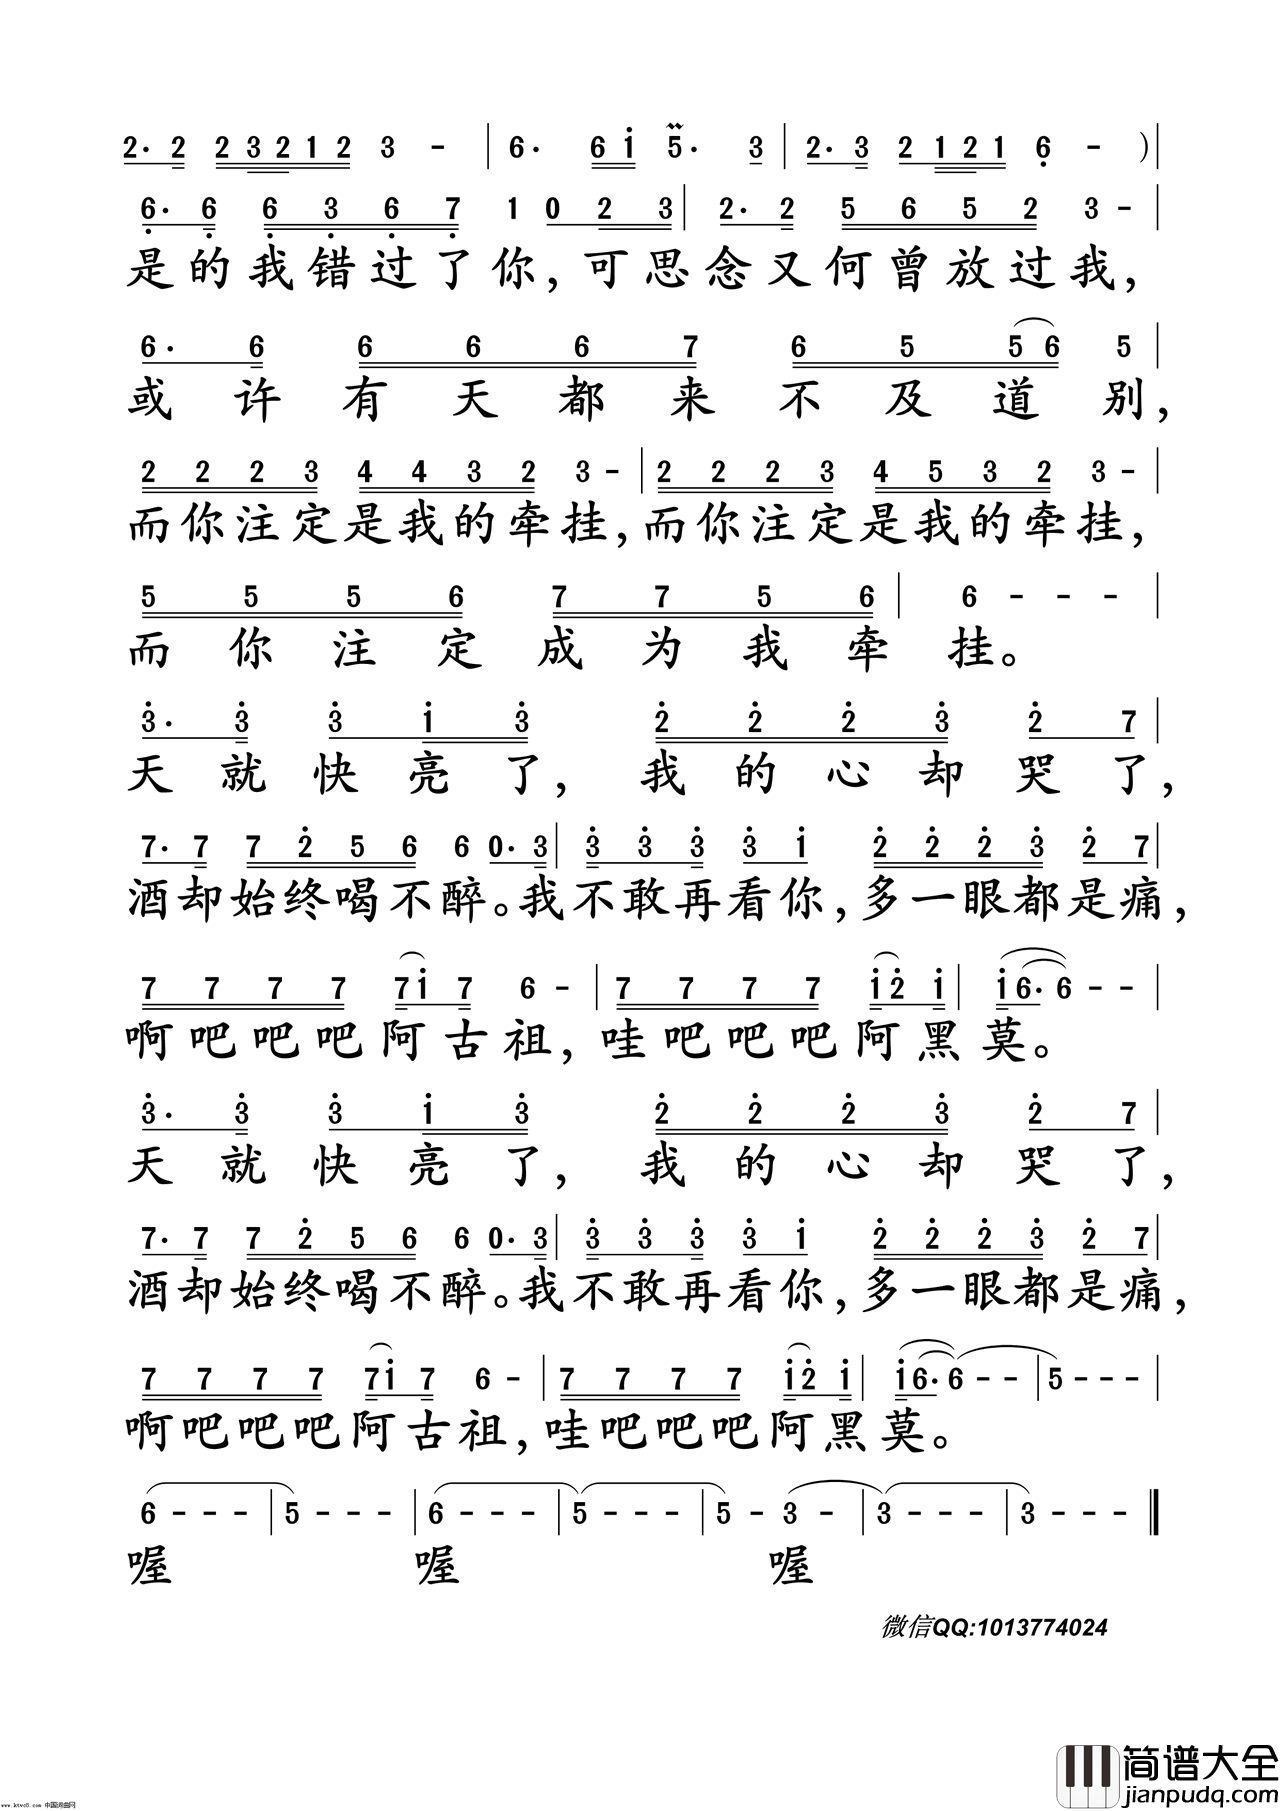 2. 2 2 3 2 1 2 3 - | 6. 6 1 5. 3 | 2. 3 2 1 2 1 6 - )|
6. 6 6 3 6 7 1 0 2 3 | 2. 2 5 6 5 2 3 - |
是的我错过了你,可思念又何曾放过我,
6. 6 6 6 6 7 6 5 5 6 5 |
或许有天都来不及道别,
2 2 2 3 4 4 3 2 3 - | 2 2 2 3 4 5 3 2 3 - |
而你注定是我的牵挂,而你注定是我的牵挂,
5 5 5 6 7 7 5 6 | 6 - - - |
而你注定成为我牵挂。
3. 3 3 1 3 2 2 2 3 2 7 |
天就快亮了,我的心却哭了,
7. 7 7 2 5 6 6 0. 3 | 3 3 3 3 1 2 2 2 3 2 7 |
酒却始终喝不醉。我不敢再看你,多一眼都是痛,
7 7 7 7 7 1 7 6 - | 7 7 7 7 1 2 1 | 1 6. 6 - - |
啊吧吧吧阿古祖,哇吧吧吧阿黑莫。
3. 3 3 1 3 2 2 2 3 2 7 |
天就快亮了,我的心却哭了,
7. 7 7 2 5 6 6 0. 3 | 3 3 3 3 1 2 2 2 3 2 7 |
酒却始终喝不醉。我不敢再看你,多一眼都是痛,
7 7 7 7 7 1 7 6 - | 7 7 7 7 1 2 1 | 1 6. 6 - - | 5 - - - |
啊吧吧吧阿古祖,哇吧吧吧阿黑莫。
6 - - - | 5 - - - | 6 - - - | 5 - - - | 5 - 3 - | 3 - - - | 3 - - - ||
喔 喔 喔
微信QQ:1013774024
简谱大全
jianpudq.com
www.ktvc8.com 中国词曲网